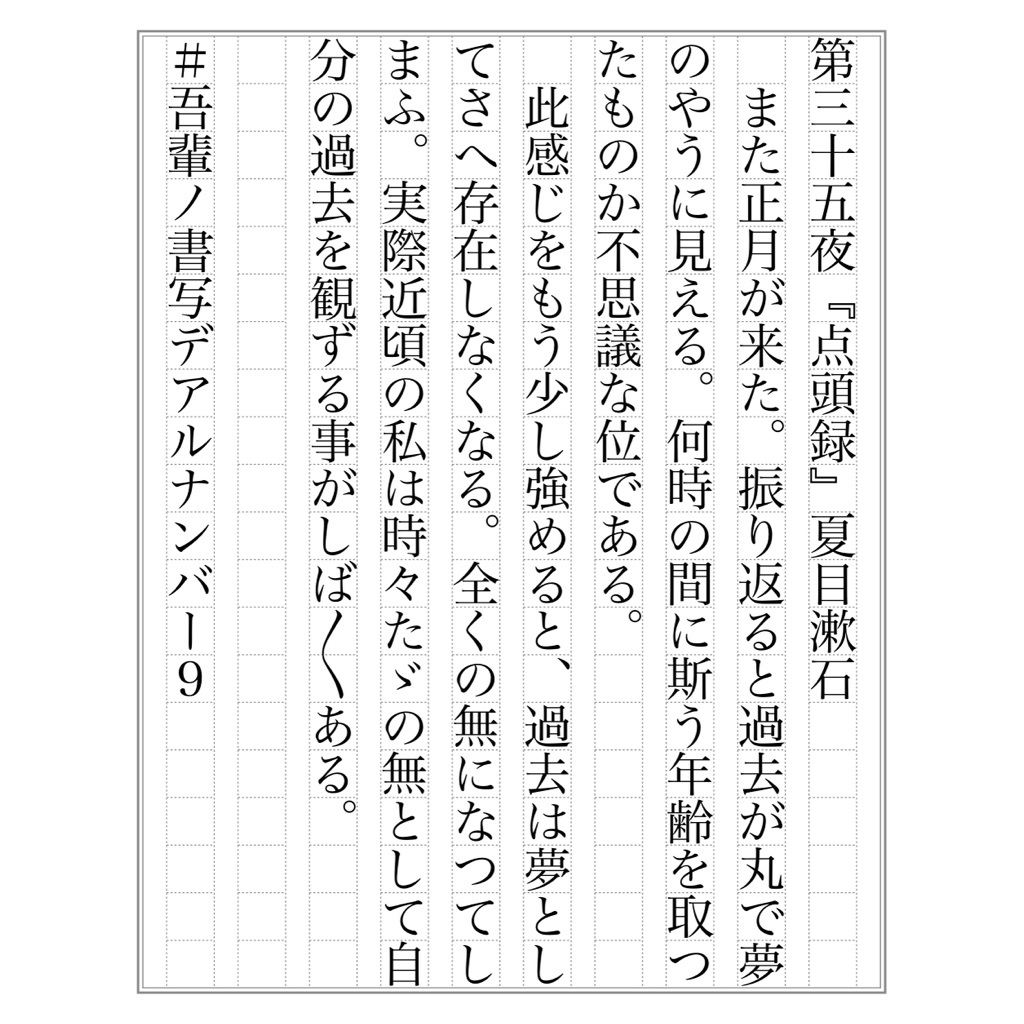 第三十五夜『点頭録』夏目漱石
　また正月が来た。振り返ると過去が丸で夢
のやうに見える。何時の間に斯う年齢を取つ
たものか不思議な位である。
　此感じをもう少し強めると、過去は夢とし
てさへ存在しなくなる。全くの無になつてし
まふ。実際近頃の私は時々たゞの無として自
分の過去を観ずる事がしば〱ある。
＃吾輩ノ書写デアルナンバー９